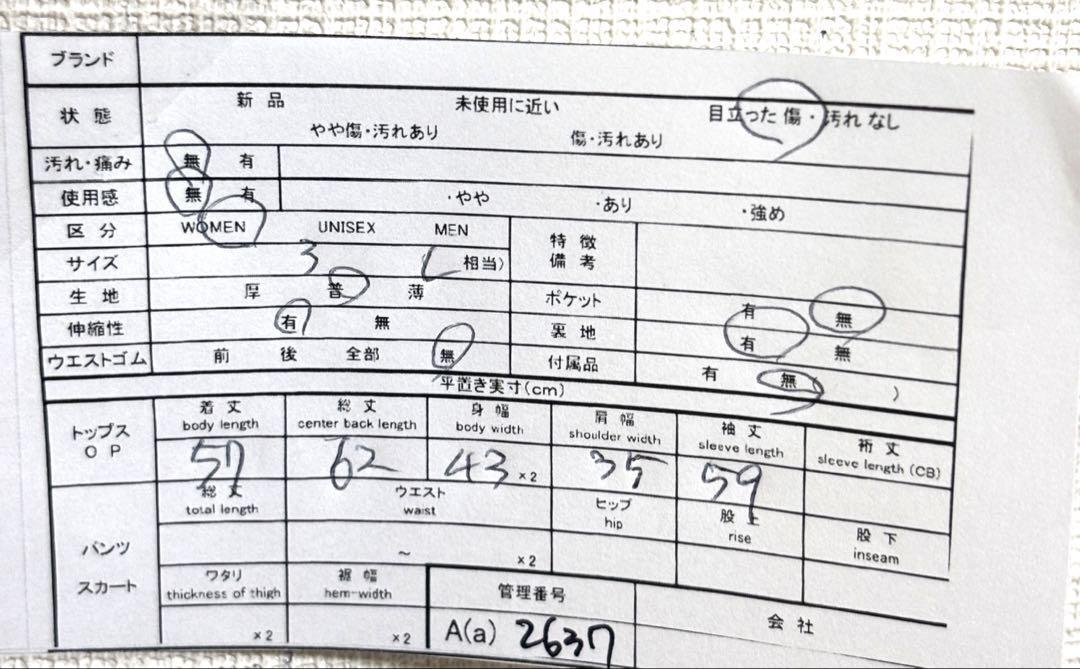 ブランド
状態 新品 未使用に近い 目立った傷・汚れなし
やや傷・汚れあり 傷・汚れあり
汚れ・痛み 無 有
使用感 無 有 ・やや ・あり ・強め
区分 WOMEN UNISEX MEN 特徴備考
サイズ 3 L 相当)
生地 厚 普 薄 ポケット 有 無
伸縮性 有 無 裏地 有 無
ウエストゴム 前 後 全部 無 付属品 有 無 )
平置き実寸(cm)
トップス OP 着丈 総丈 身幅 肩幅 袖丈 裄丈
body length center back length body width shoulder width sleeve length sleeve length (CB)
57 62 43 ×2 35 59
パンツ スカート 総丈 ウエスト ヒップ 股上 股下
total length waist hip rise inseam
~ ×2
ワタリ 裾幅 管理番号 会社
thickness of thigh hem-width
×2 ×2 A(a) 2637